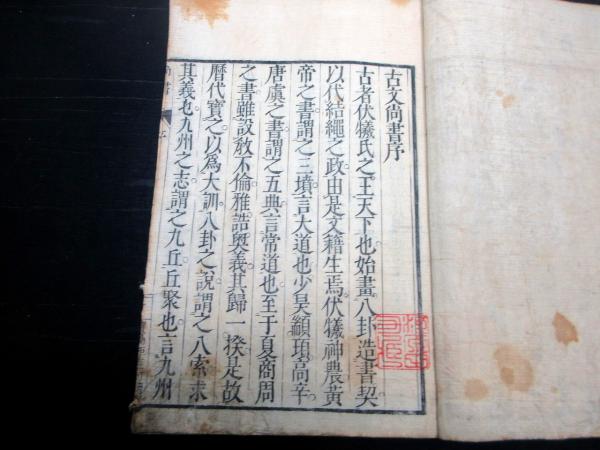 古文尚書序
古者伏犧氏之王天下也始畫八卦造書契
以代結繩之政由是文籍生焉伏犧神農黃
帝之書謂之三墳言大道也少昊顓頊高辛
唐虞之書謂之五典言常道也至于夏商周
之書雖設教不倫雅誥奧義其歸一揆是故
曆代寶之以爲大訓八卦之說謂之八索求
其義也九州之志謂之九丘丘聚也言九州